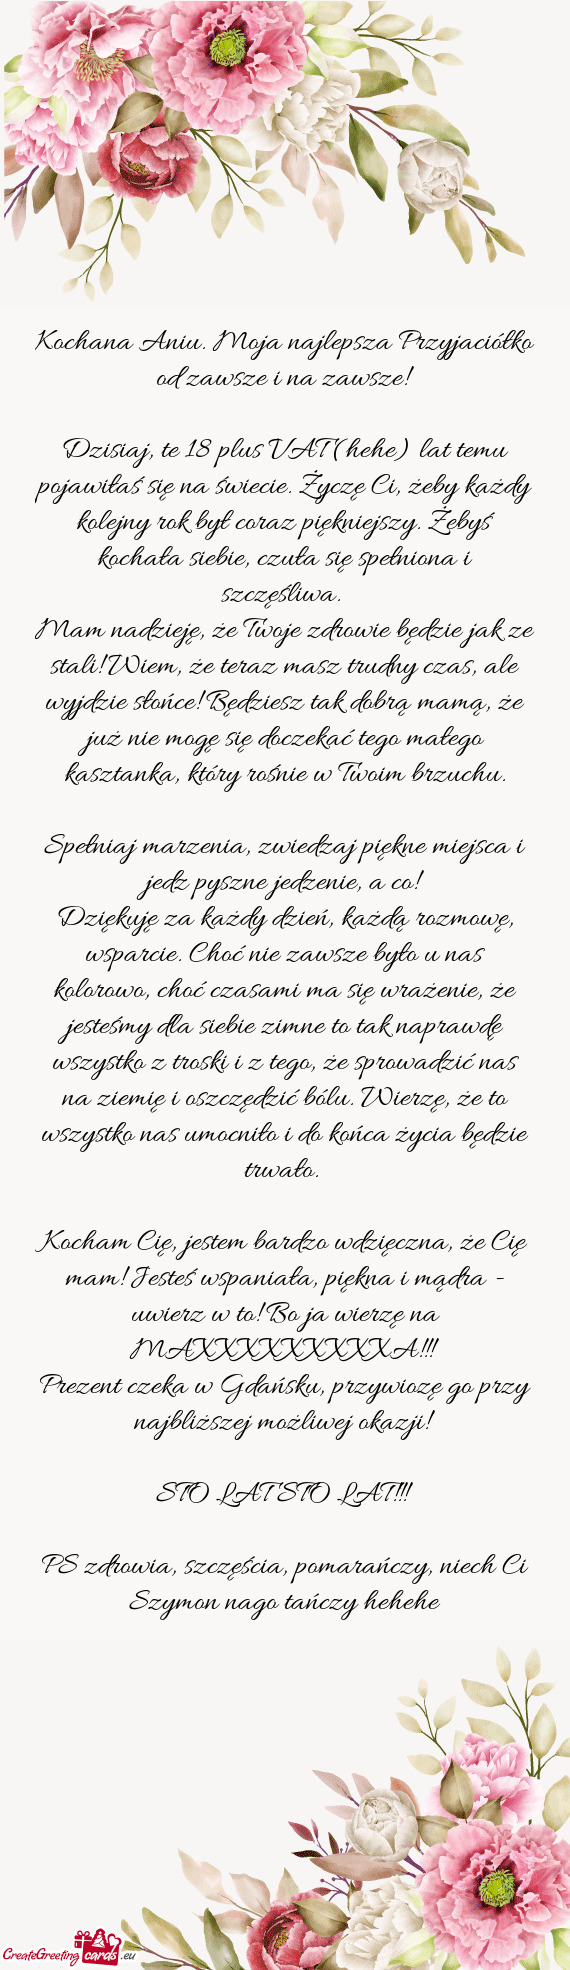 Kochana Aniu. Moja najlepsza Przyjaciółko
od zawsze i na zawsze!
Dzisiaj, te 18 plus VAT(hehe) lat temu
pojawiłaś się na świecie. Życzę Ci, żeby każdy
kolejny rok był coraz piękniejszy. Żebyś
kochała siebie, czuła się spełniona i
szczęśliwa.
Mam nadzieję, że Twoje zdrowie będzie jak ze
stali! Wiem, że teraz masz trudny czas, ale
wyjdzie słońce! Będziesz tak dobrą mamą, że
już nie mogę się doczekać tego małego
kasztanka, który rośnie w Twoim brzuchu.
Spełniaj marzenia, zwiedzaj piękne miejsca i
jedz pyszne jedzenie, a co!
Dziękuję za każdy dzień, każdą rozmowę,
wsparcie. Choć nie zawsze było u nas
kolorowo, choć czasami ma się wrażenie, że
jesteśmy dla siebie zimne to tak naprawdę
wszystko z troski i z tego, że sprowadzić nas
na ziemię i oszczędzić bólu. Wierzę, że to
wszystko nas umocniło i do końca życia będzie
trwało.
Kocham Cię, jestem bardzo wdzięczna, że Cię
mam! Jesteś wspaniała, piękna i mądra -
uwierz w to! Bo ja wierzę na
MAXXXXXXXXXA!!!
Prezent czeka w Gdańsku, przywiozę go przy
najbliższej możliwej okazji!
STO LAT STO LAT!!!
PS zdrowia, szczęścia, pomarańczy, niech Ci
Szymon nago tańczy hehehe
CreateGreeting cards .eu